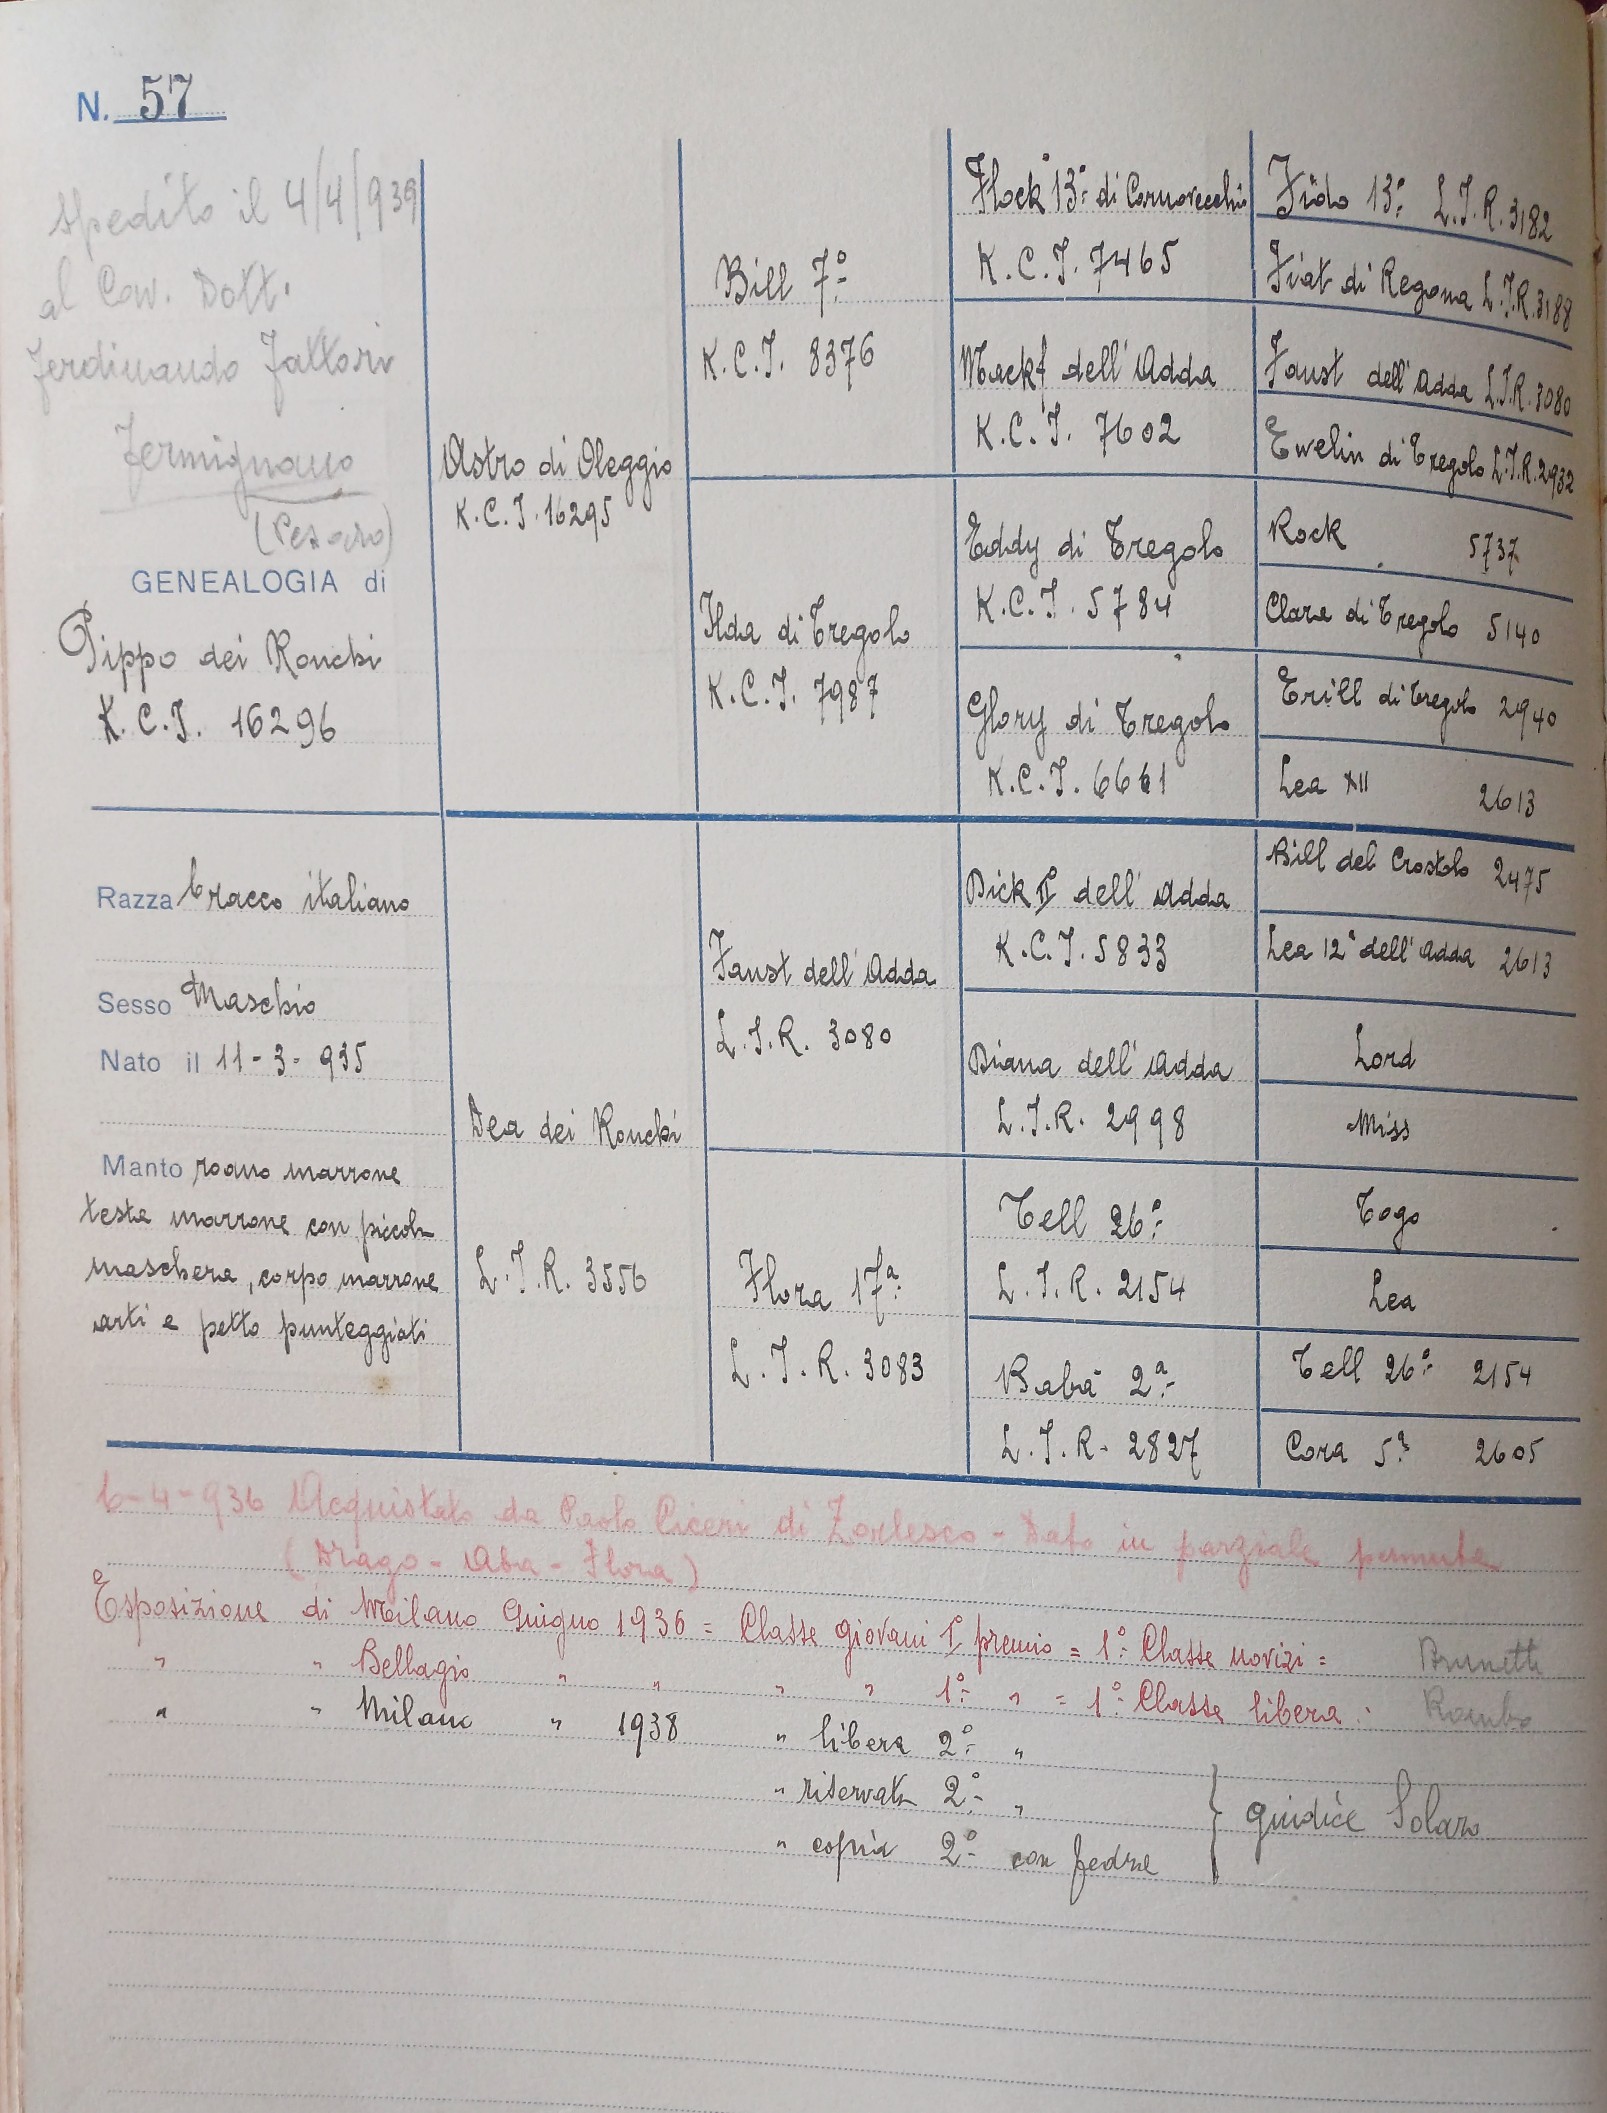 N. 57
spedito il 4/4/939
al Cav. Dott.
Ferdinando Fattori
Fermignano
(Pesaro)
GENEALOGIA di
Pippo dei Ronchi
K.C.I. 16296
Razza bracco italiano
Sesso Maschio
Nato il 11-3-935
Manto roano marrone
testa marrone con piccola
maschera, corpo marrone
arti e petto punteggiati
Astro di Oleggio
K.C.I. 16295
Dea dei Ronchi
L.I.R. 3556
Bill 7º
K.C.I. 8376
Ilda di Tregolo
K.C.I. 7987
Faust dell'Adda
L.I.R. 3080
Flora 17ª
L.I.R. 3083
Flock 13º di Cornovecchio
K.C.I. 7465
dell'Adda
K.C.I. 7602
Eddy di Tregolo
K.C.I. 5784
Glory di Tregolo
K.C.I. 6661
Dick IIº dell'Adda
K.C.I. 5833
Diana dell'Adda
L.I.R. 2998
Tell 26º
L.I.R. 2154
Baba 2ª
L.I.R. 2827
Fido 13º L.I.R. 3182
Fiat di Regona L.I.R. 3188
Faust dell'Adda L.I.R. 3080
Ewelin di Tregolo L.I.R. 2932
Rock 5737
Clara di Tregolo 5140
Trill di Tregolo 2940
Lea XII 2613
Bill del Crostolo 2475
Lea 12ª dell'Adda 2613
Lord
Miss
Togo
Lea
Tell 26º 2154
Cora 5ª 2605
6-4-936 Acquistato da Paolo Ciceri di Zorlesco - Dato in parziale permuta
(Drago - Aba - Flora)
Esposizione di Milano Giugno 1936 = Classe giovani Iº premio = 1º Classe novizi = Brunetti
" " Bellagio " " " " 1º " = 1º Classe libera :
" " Milano " 1938 " libera 2º "
" riservata 2º "
" copia 2º con Fedra
} giudice Solaro